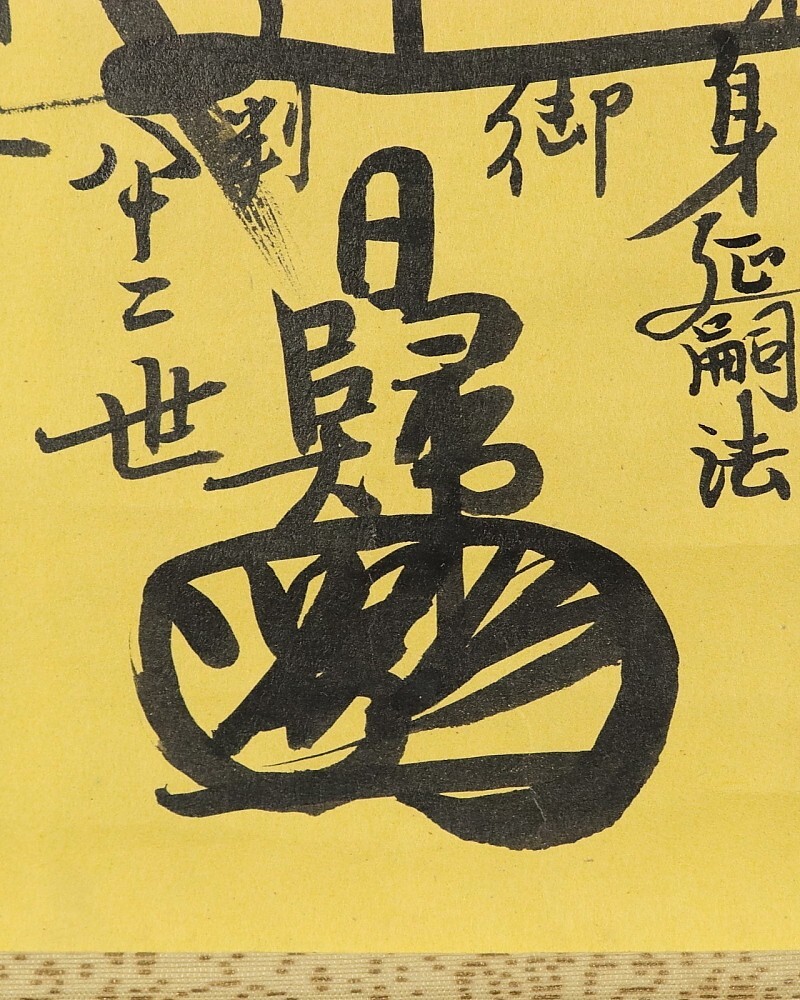 身延嗣法
御
判
八十二世
日